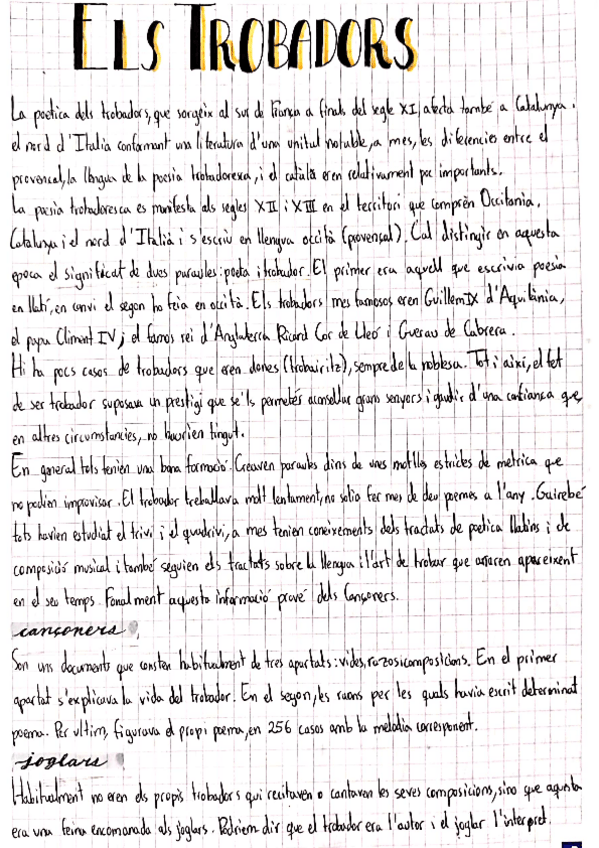 ELS TROBADORS
La poetica dels trobadors, que sorgeix al sur de França a finals del segle XI, afecta també a Catalunya.
el nord d'Italia conformant una literatura d'una unitat notable, a mes, les diferencies entre el
provençal, la llengua de la poesia trobadoresca, i el català eren relativament poc importants.
La poesia trobadoresca es manifesta als segles XII i XIII en el territori que comprèn Occitania,
Catalunya i el nord d'Italià i s'escriu en llengua occità (provençal). Cal distingir en aquesta
epoca el significat de dues paraules: poeta i trobador. El primer era aquell que escrivia poesia
en llatí, en canvi el segon ho feia en occità. Els trobadors mes famosos eren Guillem IX d'Aquitània,
el papa Climent IV, el famos rei d'Anglaterra Ricard Cor de Lleó i Guerau de Cabrera.
Hi ha pocs casos de trobadors que eren dones (trobairitz), sempre de la noblesa. Tot i així, el fet
de ser trobador suposava un prestigi que se'ls permetés aconsellar grans senyors i gaudir d'una confiança que,
en altres circumstancies, no haurien tingut.
En general tots tenien una bona formació. Creaven paraules dins de unes motlles estrictes de metrica que
no podien improvisar. El trobador treballava molt lentament, no solia fer mes de deu poemes a l'any. Gairebé
tots havien estudiat el trivi i el quadrivi, a mes tenien coneixements dels tractats de poetica llatins i de
composició musical i també seguien els tractats sobre la llengua i l'art de trobar que anaren apareixent
en el seu temps. Fonalment aquesta informació prové dels Cançoners.
cançoners
Son uns documents que consten habitualment de tres apartats: vides, razos i composicions. En el primer
apartat s'explicava la vida del trobador. En el segon, les raons per les quals havia escrit determinat
poema. Per ultim, figurava el propi poema, en 256 casos amb la melodia corresponent.
joglars
Habitualment no eren els propis trobadors qui recitaven o cantaven les seves composicions, sino que aquesta
era una feina encomanada als joglars. Podriem dir que el trobador era l'autor i el joglar l'intèrpret.